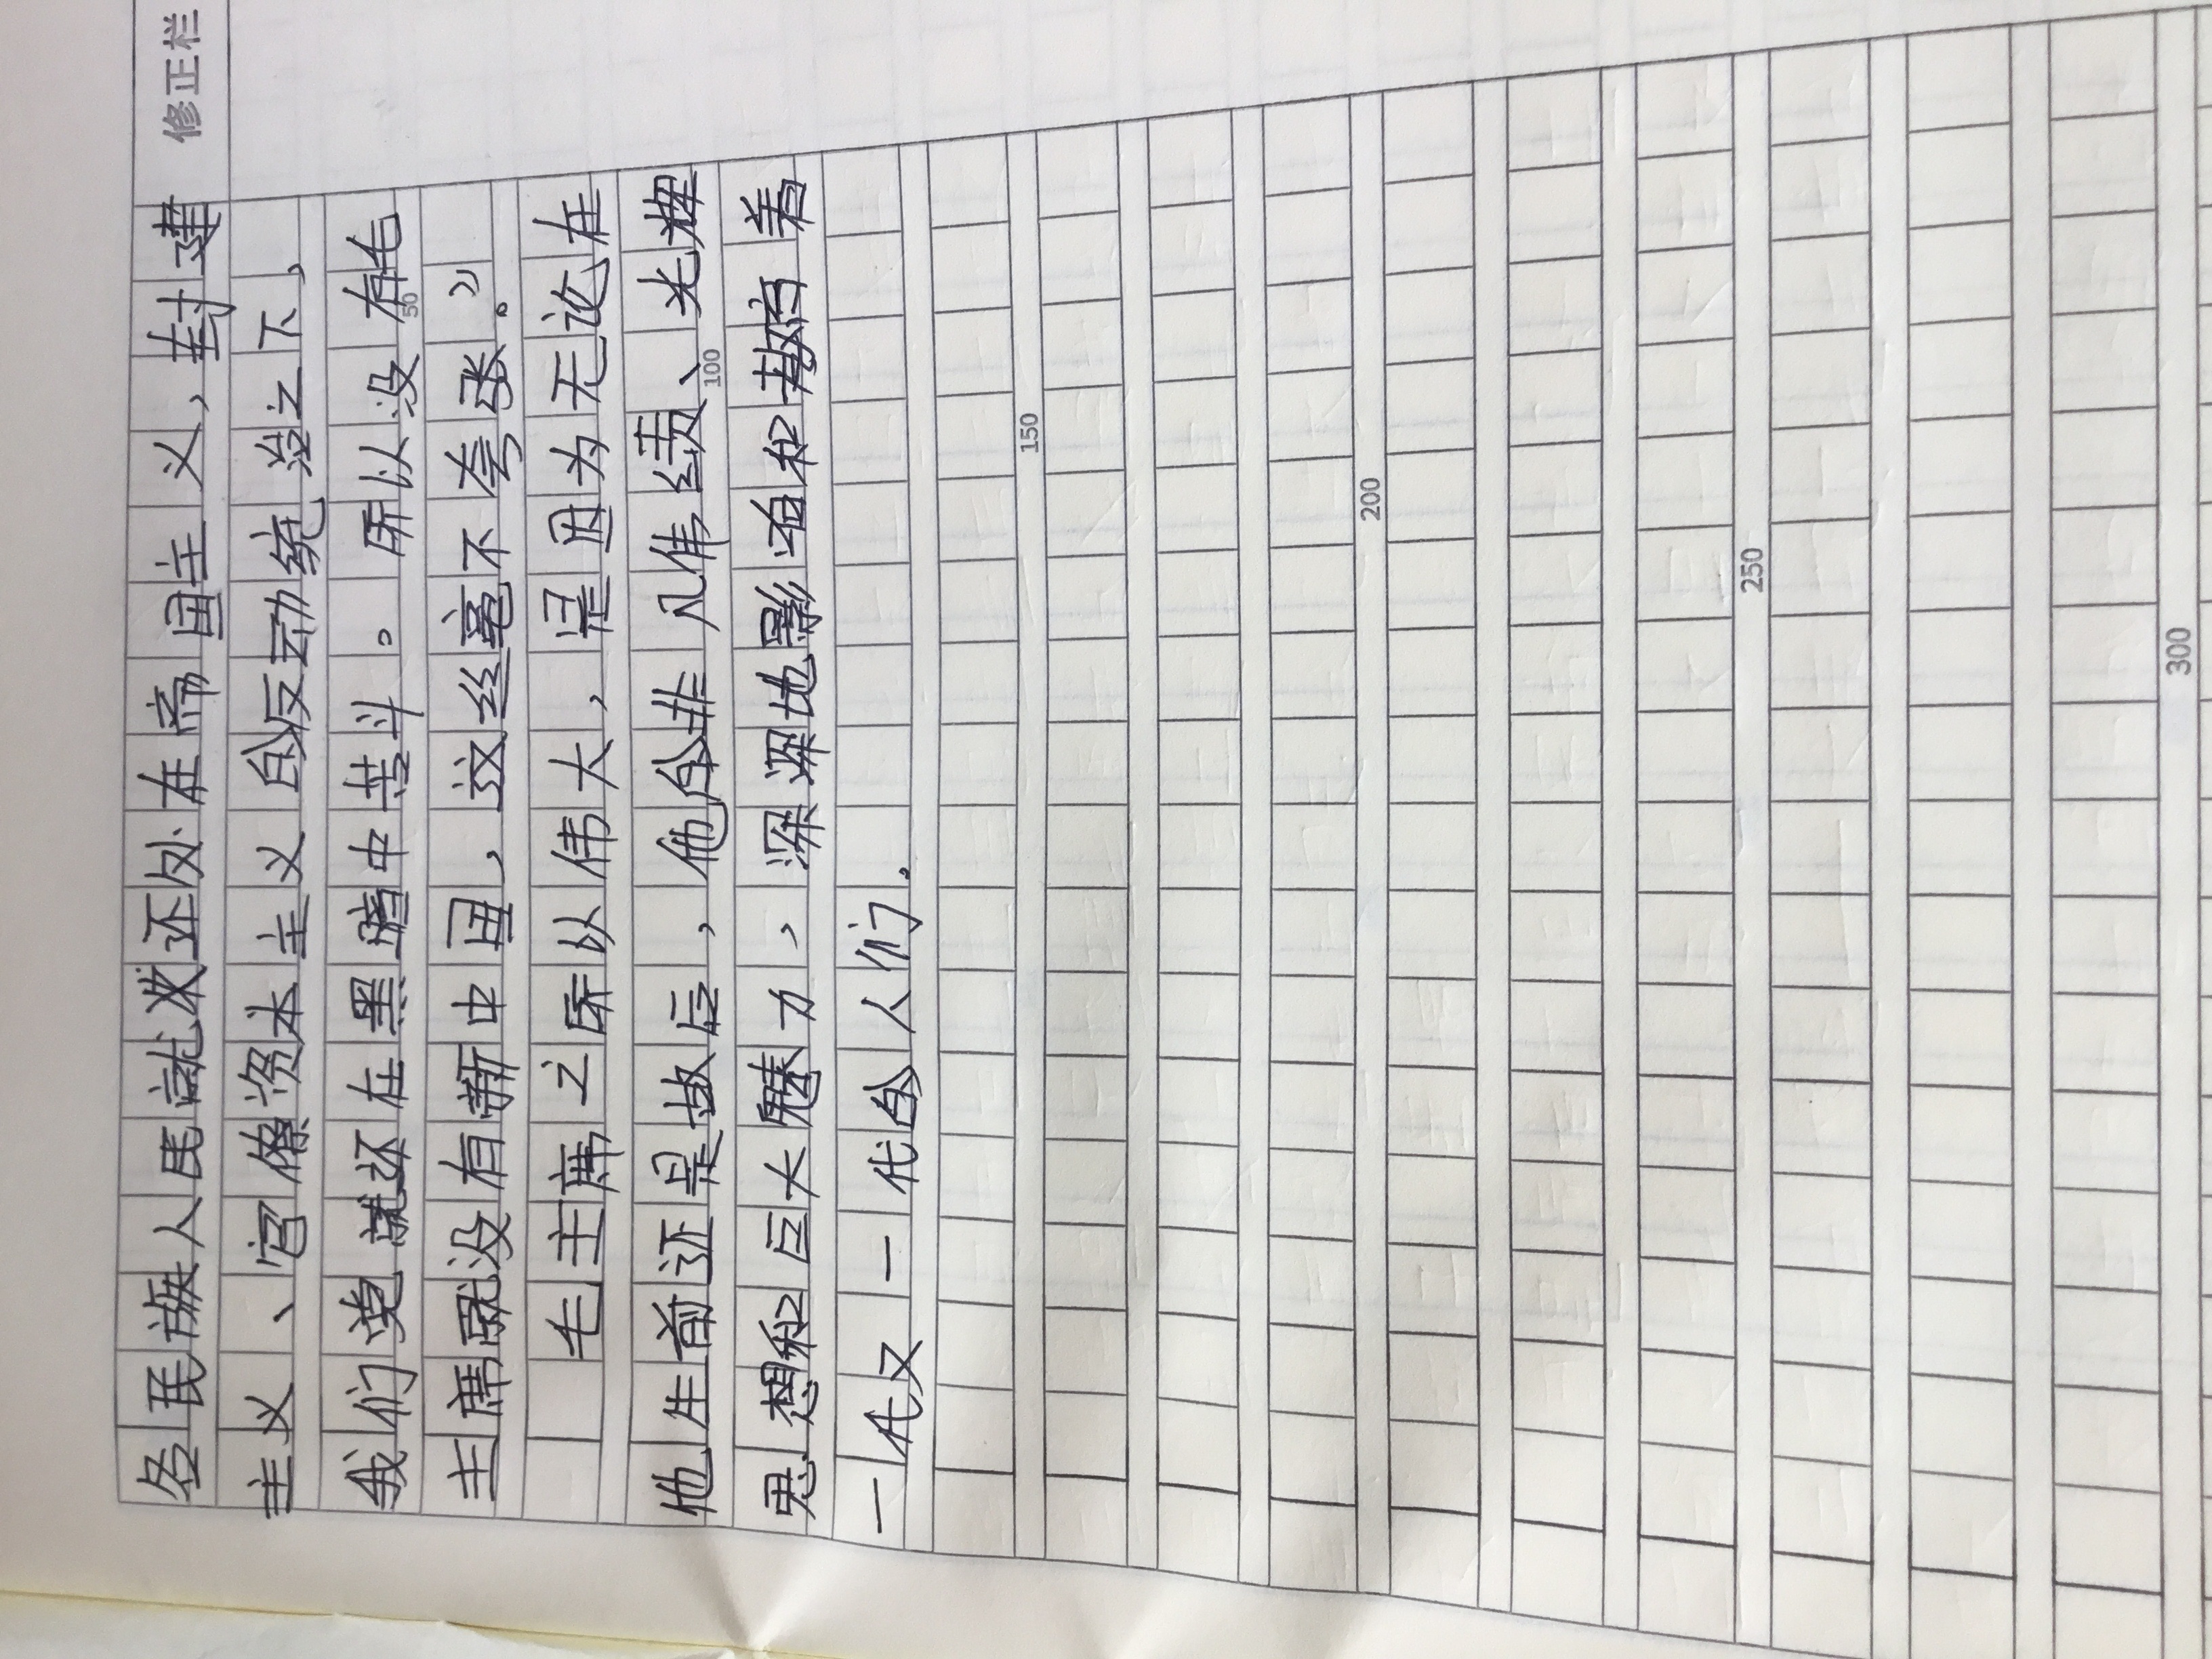 修正栏
各民族人民就状还处在帝国主义，封建
主义、官僚资本主义的反动统治之下，
我们党就还在黑暗中苦斗。所以没有毛
50
主席就没有新中国，这丝毫不夸张。”
毛主席之所以伟大，是因为无论在
他生前还是故后，他的非凡伟绩、光辉
100
思想和巨大魅力，深深地影响和激励着
一代又一代的人们。
150
200
250
300